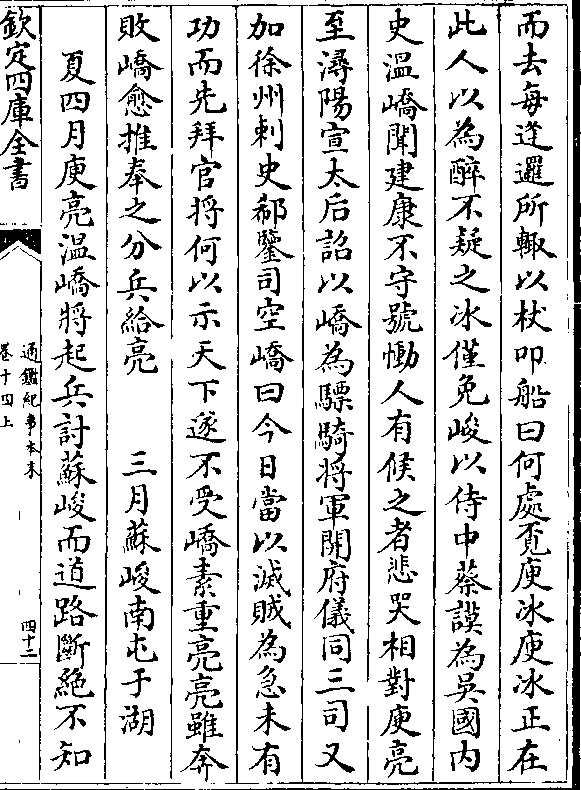 而去每逢邏所輙以杖叩船曰何處覔庾冰庾冰正在
此人以為醉不疑之冰僅免峻以侍中蔡謨為吳國内
史溫嶠聞建康不守號慟人有候之者悲哭相對庾亮
至潯陽宣太后詔以嶠為驃騎將軍開府儀同三司又
加徐州刺史郗鑒司空嶠曰今日當以滅賊為急未有
功而先拜官將何以示天下遂不受嶠素重亮亮雖奔
敗嶠愈推奉之分兵給亮　　三月蘇峻南屯于湖
夏四月庾亮溫嶠將起兵討蘇峻而道路斷絶不知
欽定四庫全書
通鑑紀事本末
卷十四上
四十二